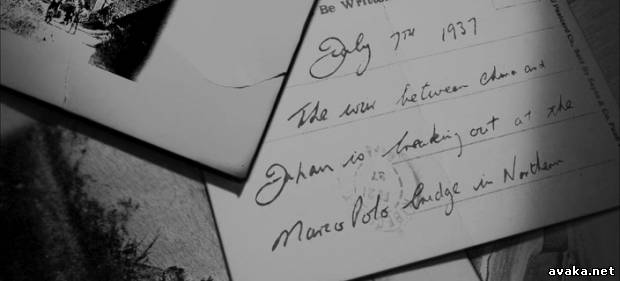 Be Writ
July 7TH 1937
The war between China and
Japan is breaking out at the
Marco Polo bridge in Northern
avaka.net